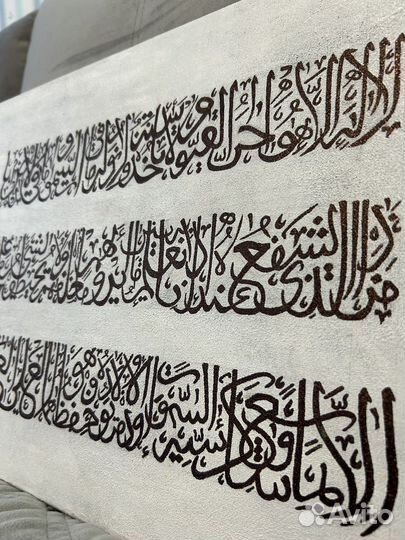 الله لا اله الا هو الحي القيوم لا تأخذه سنة ولا نوم له ما في السموت وما في
من ذا الذي يشفع عنده الا باذنه يعلم ما بين ايديهم وما خلفهم ولا يحيطون بشيء
الا بما شاء وسع كرسيه السموت والارض ولا يؤده حفظهما وهو العلي
Avito